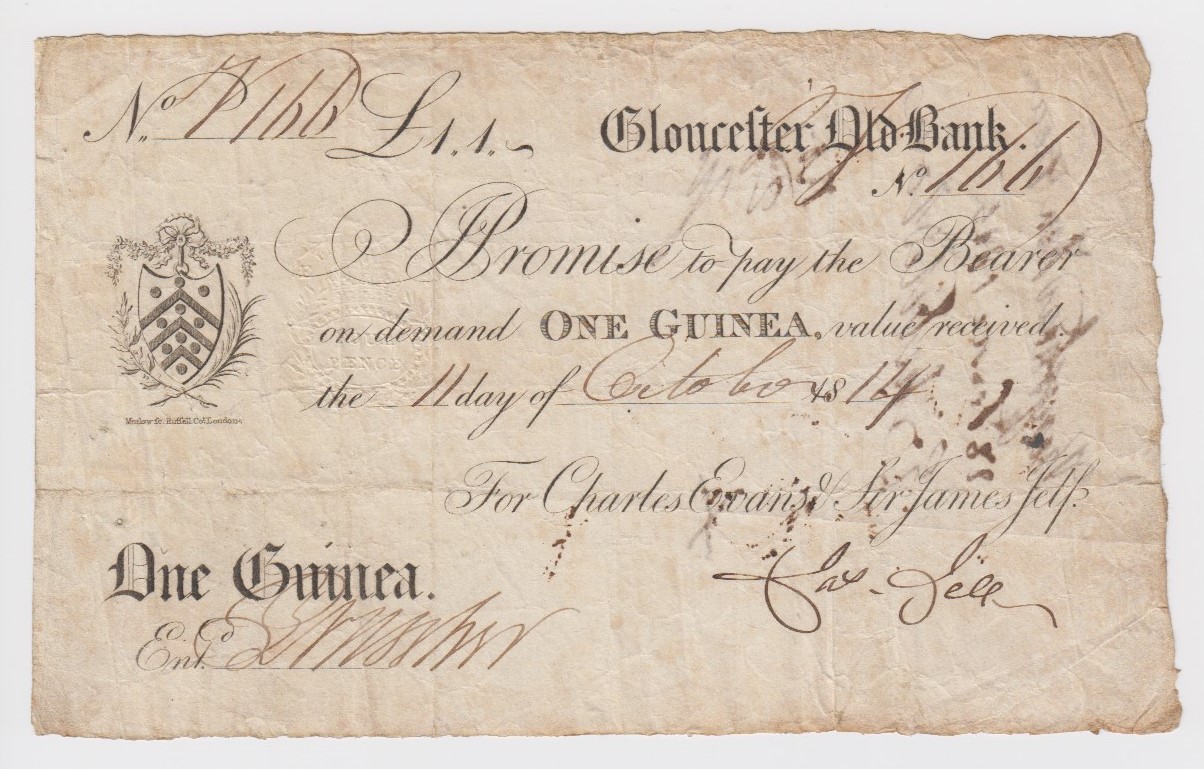 No. 7166 £1.1.
Gloucester Old Bank.
No. 7166
I Promise to pay the Bearer
on demand ONE GUINEA. value received
the 11 day of October 1814
For Charles Evans & Sir James Jelf.
Jas. Jelf
One Guinea.
Entd.
PENCE